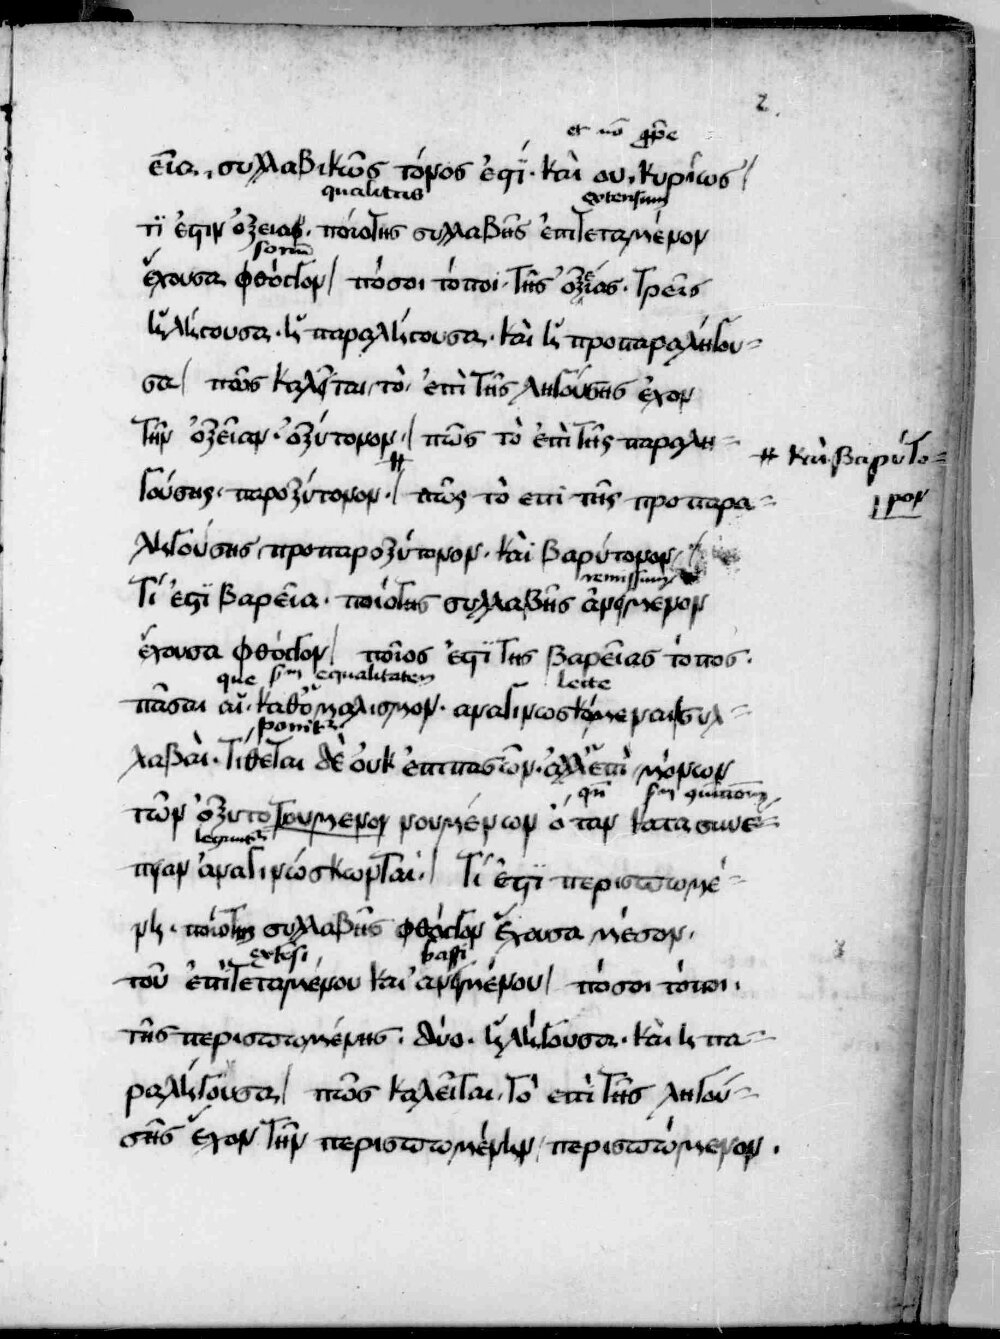 2.
et nõ ꝓpe
εῖα, συλλαβικῶς τόνος ἐστί· καὶ ου, κυρίως /
qualitas extensum
τί ἐστιν ὀξεῖα· ποιότης συλλαβῆς ἐπιτεταμένον
sonũ
ἔχουσα φθόγγον / πόσοι τόποι τῆς ὀξείας· τρεῖς
ἡ λήγουσα· ἡ παραλήγουσα· καὶ ἡ προπαραλήγου=
σα / πῶς καλεῖται τὸ ἐπὶ τῆς ληγούσης ἔχον
τὴν ὀξεῖαν· ὀξύτονον· / πῶς τὸ ἐπὶ τῆς παραλη=
# καὶ βαρύτο=
νον
γούσης· παροξύτονον· # / πῶς τὸ επι τῆς προπαρα=
ληγούσης, προπαροξύτονον· καὶ βαρύτονον /
remissum
Τί ἐστὶ βαρεῖα· ποιότης συλλαβῆς ἀνειμένον
ἔχουσα φθόγγον / ποῖος ἐστὶ τῆς βαρείας τόπος·
que sm equalitatem lecte
πᾶσαι αἱ· καθ' ὁμαλισμὸν· αναγινωσκόμεναι συλ=
ponitr
λαβαὶ· τίθεται δὲ οὐκ ἐπι πασῶν· ἀλλ' ἐπὶ μόνων
qñ sm
τῶν ὀξυτο τουμενον νουμένων ὅταν κατα συνέ=
legunt
πειαν ἀναγινώσκωνται· / Τί ἐστὶ περισπωμέ=
νη· ποιότης συλλαβῆς φθόγγον ἔχουσα μέσον,
extẽsi bassi
τοῦ ἐπιτεταμένου καὶ ἀνειμένου / πόσοι τόποι·
τῆς περισπωμένης· δύο· ἡ λήγουσα· καὶ ἡ πα=
ραλήγουσα / πῶς καλεῖται· τὸ ἐπὶ τῆς ληγού=
σης ἔχον τὴν περισπωμένην / περισπώμενον·